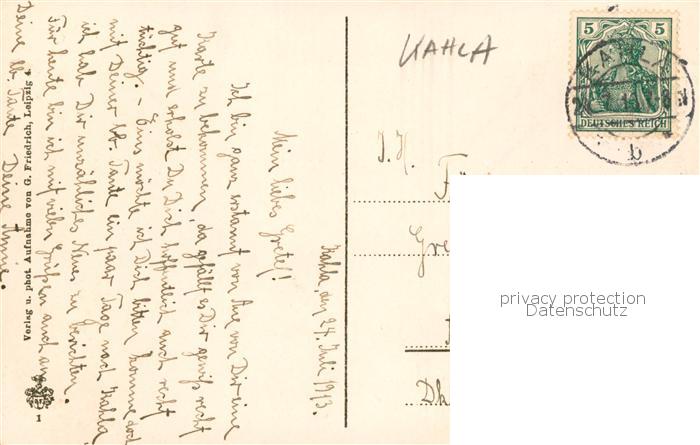 Kahla, den 24. Juli 1913.
Mein liebes Gretel!
Ich bin ganz erstaunt von Aue von Dir eine
Karte zu bekommen, da gefällt es Dir gewiß recht
gut und erholst Du Dich hoffentlich auch recht
tüchtig. – Eins möchte ich Dich bitten komme doch
mit Deiner lb. Tante ein paar Tage nach Kahla
ich hab Dir unzähliches Neues zu berichten.
Für heute bin ich mit vielen Grüßen auch an
Deine lb. Tante Deine Anne.
Verlag u. phot. Aufnahme von G. Friedrich, Leipzig
1
KAHLA
5 5
DEUTSCHES REICH
b
J. H.
privacy protection
Datenschutz